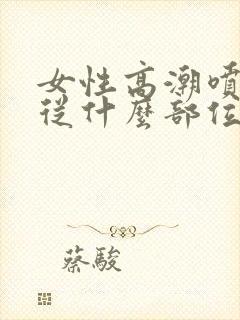 女性高潮噴
從什麼部位
蔡駿